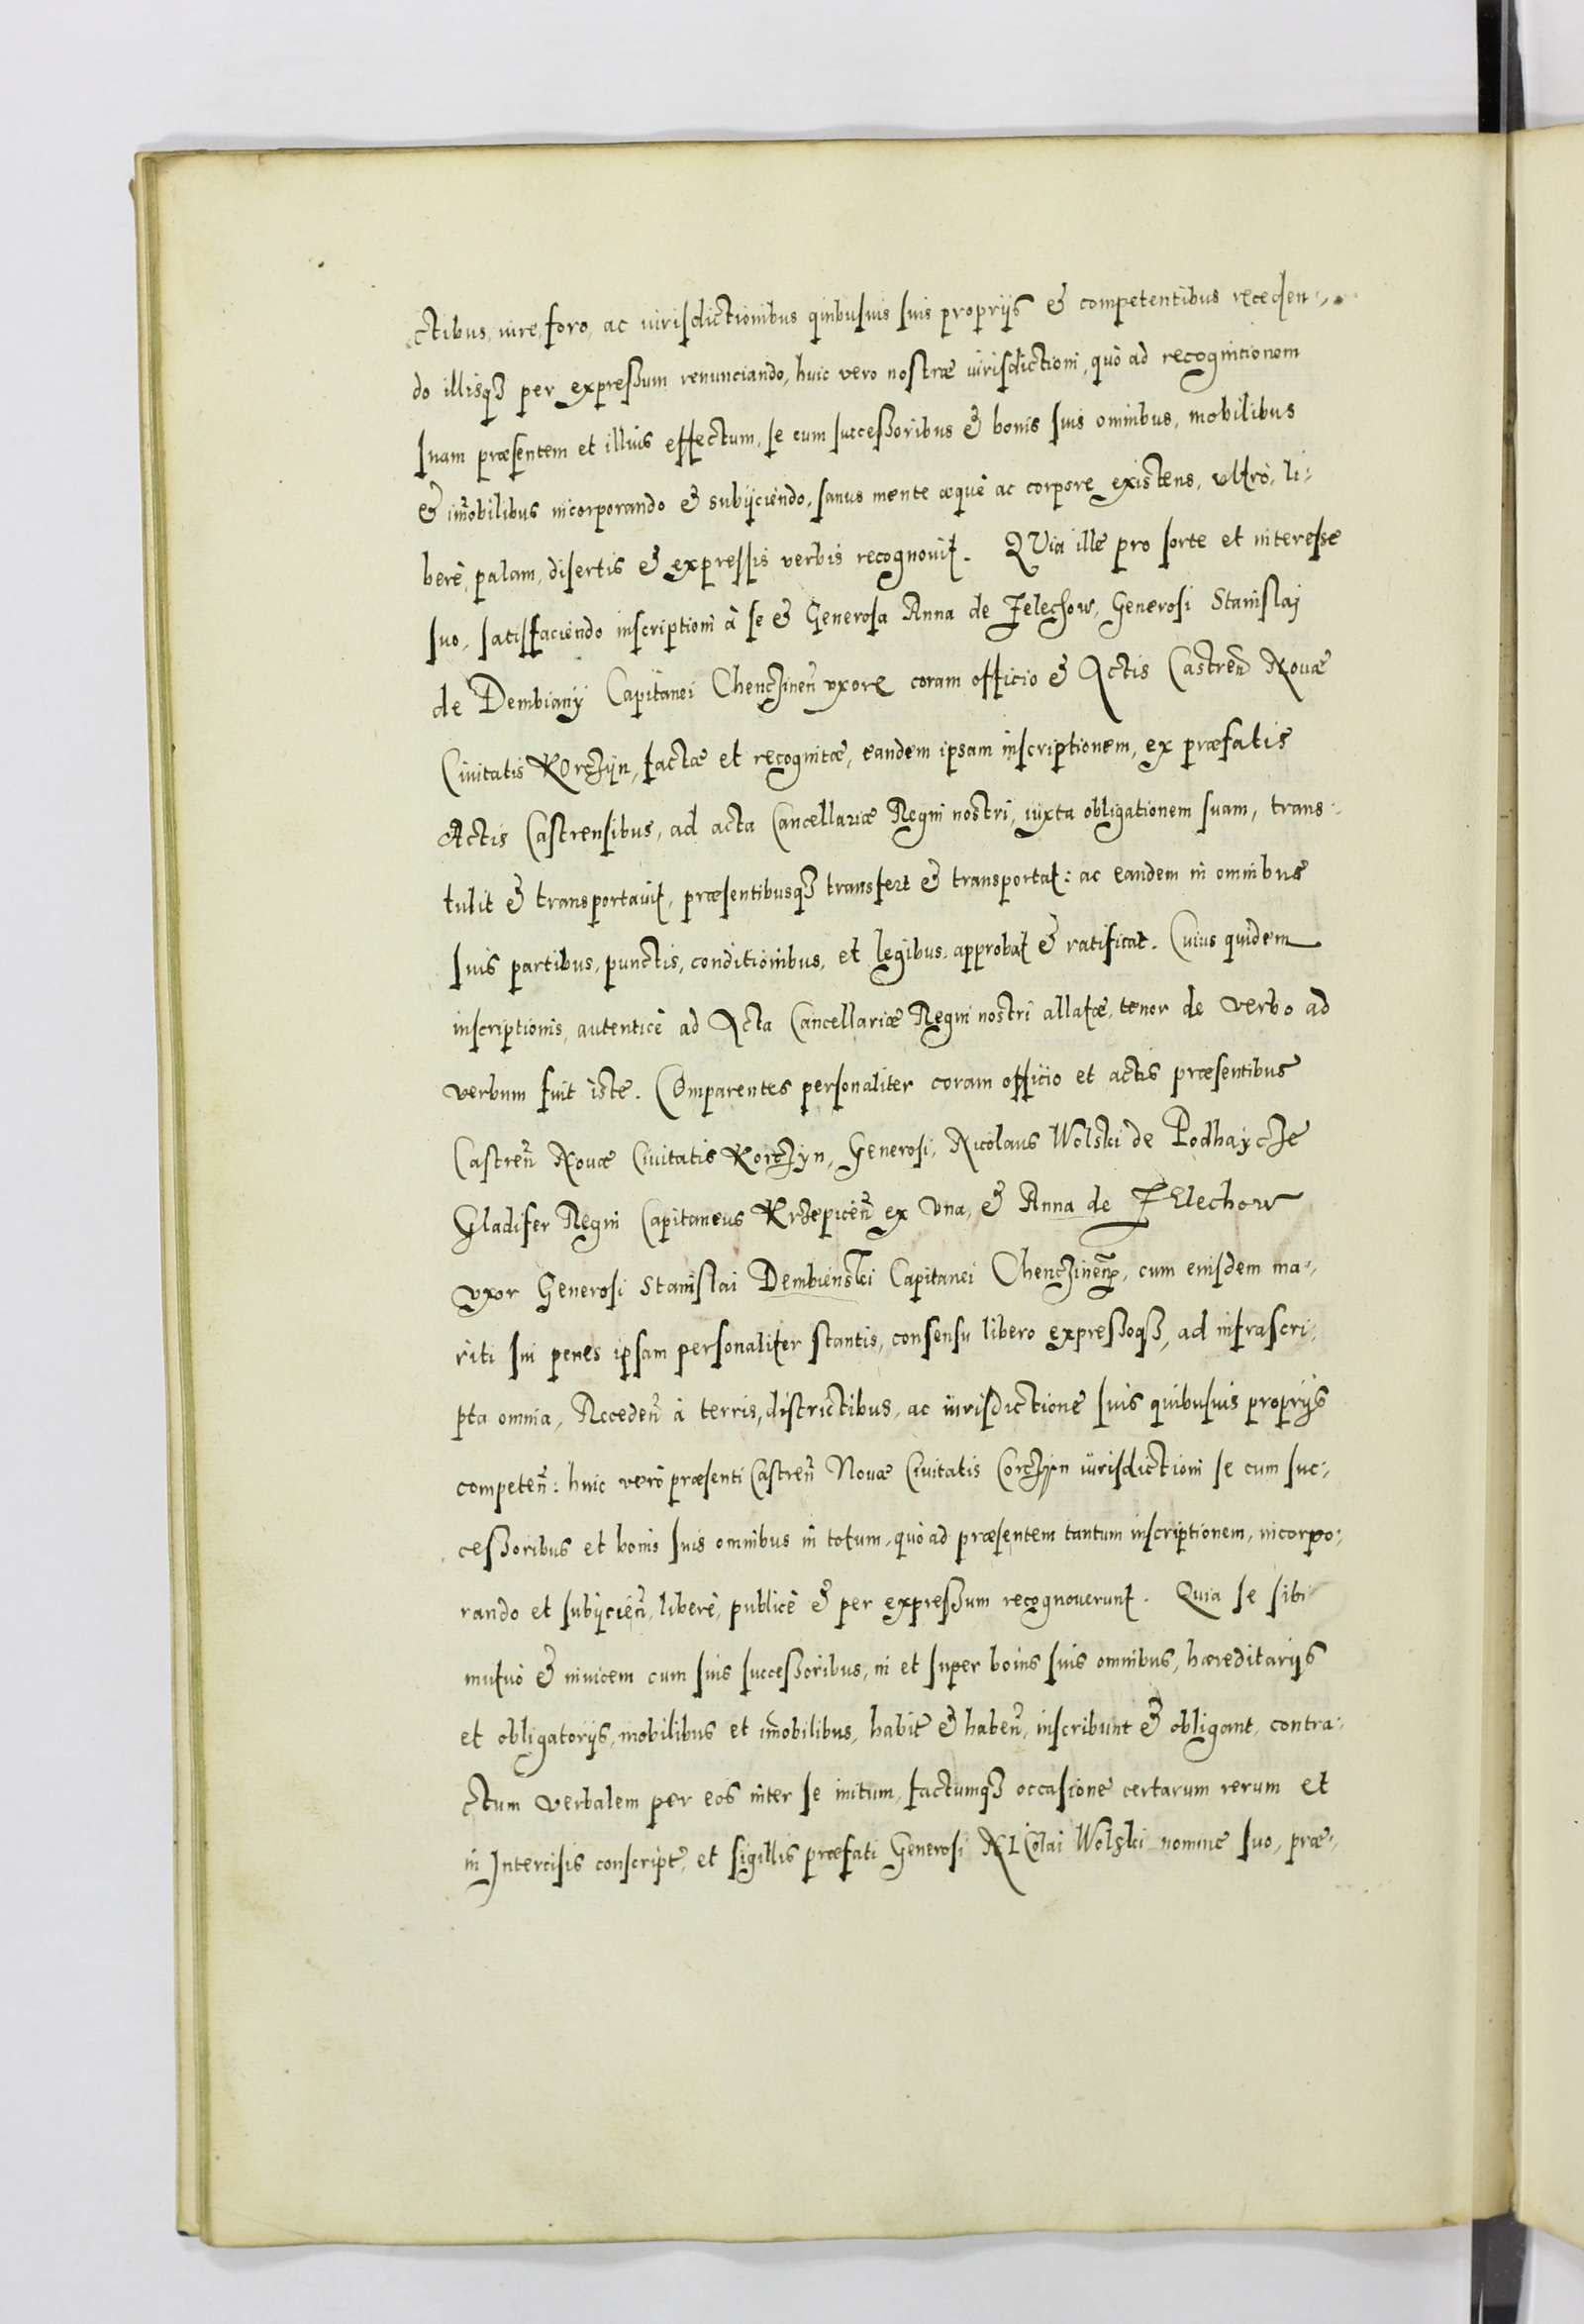 ctibus, iure, foro, ac iurisdictionibus quibusuis suis proprijs & competentibus receden-
do illisq₃ per expressum renunciando, huic vero nostræ iurisdictioni, quò ad recognitionem
suam præsentem et illius effectum, se cum successoribus & bonis suis omnibus, mobilibus
& im̄obilibus incorporando & subijciendo, sanus mente æquè ac corpore existens, vltrò, li-
berè, palam, disertis & expressis verbis recognouit. QVia ille pro sorte et interesse
suo, satisfaciendo inscriptioni à se & Generosa Anna de Zelechow, Generosi Stanislaj
de Dembiany Capitanei Chenczinen̄ vxore coram officio & Actis Castren̄ Nouæ
Ciuitatis KOrczijn, factæ et recognitæ, eandem ipsam inscriptionem, ex præfatis
Actis Castrensibus, ad acta Cancellariæ Regni nostri, iuxta obligationem suam, trans-
tulit & transportauit, præsentibusq₃ transfert & transportat: ac eandem in omnibus
suis partibus, punctis, conditionibus, et legibus, approbat & ratificat. Cuius quidem
inscriptionis, autenticè ad Acta Cancellariæ Regni nostri allatæ, tenor de verbo ad
verbum fuit iste. COmparentes personaliter coram officio et actis præsentibus
Castren̄ Nouæ Ciuitatis Korczyn, Generosi, Nicolaus Wolski de Podhaycze
Gladifer Regni Capitaneus Krzepicen̄ ex vna, & Anna de ZElechow
vxor Generosi Stanislai Dembienski Capitanei Chenczinen̄, cum eiusdem ma-
riti sui penes ipsam personaliter stantis, consensu libero expressoq₃, ad infrascri-
pta omnia, Receden̄ à terris, districtibus, ac iurisdictione suis quibusuis proprijs
competen̄: huic verò præsenti Castren̄ Nouæ Ciuitatis Corczyn iurisdictioni se cum suc-
cessoribus et bonis suis omnibus in totum, quò ad præsentem tantum inscriptionem, incorpo-
rando et subijcien̄, liberè, publicè & per expressum recognouerunt. Quia se sibi
mutuò & inuicem cum suis successoribus, in et super bonis suis omnibus, hæreditarijs
et obligatorijs, mobilibus et im̄obilibus, habit̄ & haben̄, inscribunt & obligant, contra-
ctum verbalem per eos inter se initum, factumq₃ occasione certarum rerum et
in Intercisis conscript̄, et sigillis præfati Generosi NICOlai Wolski nomine suo, præ-